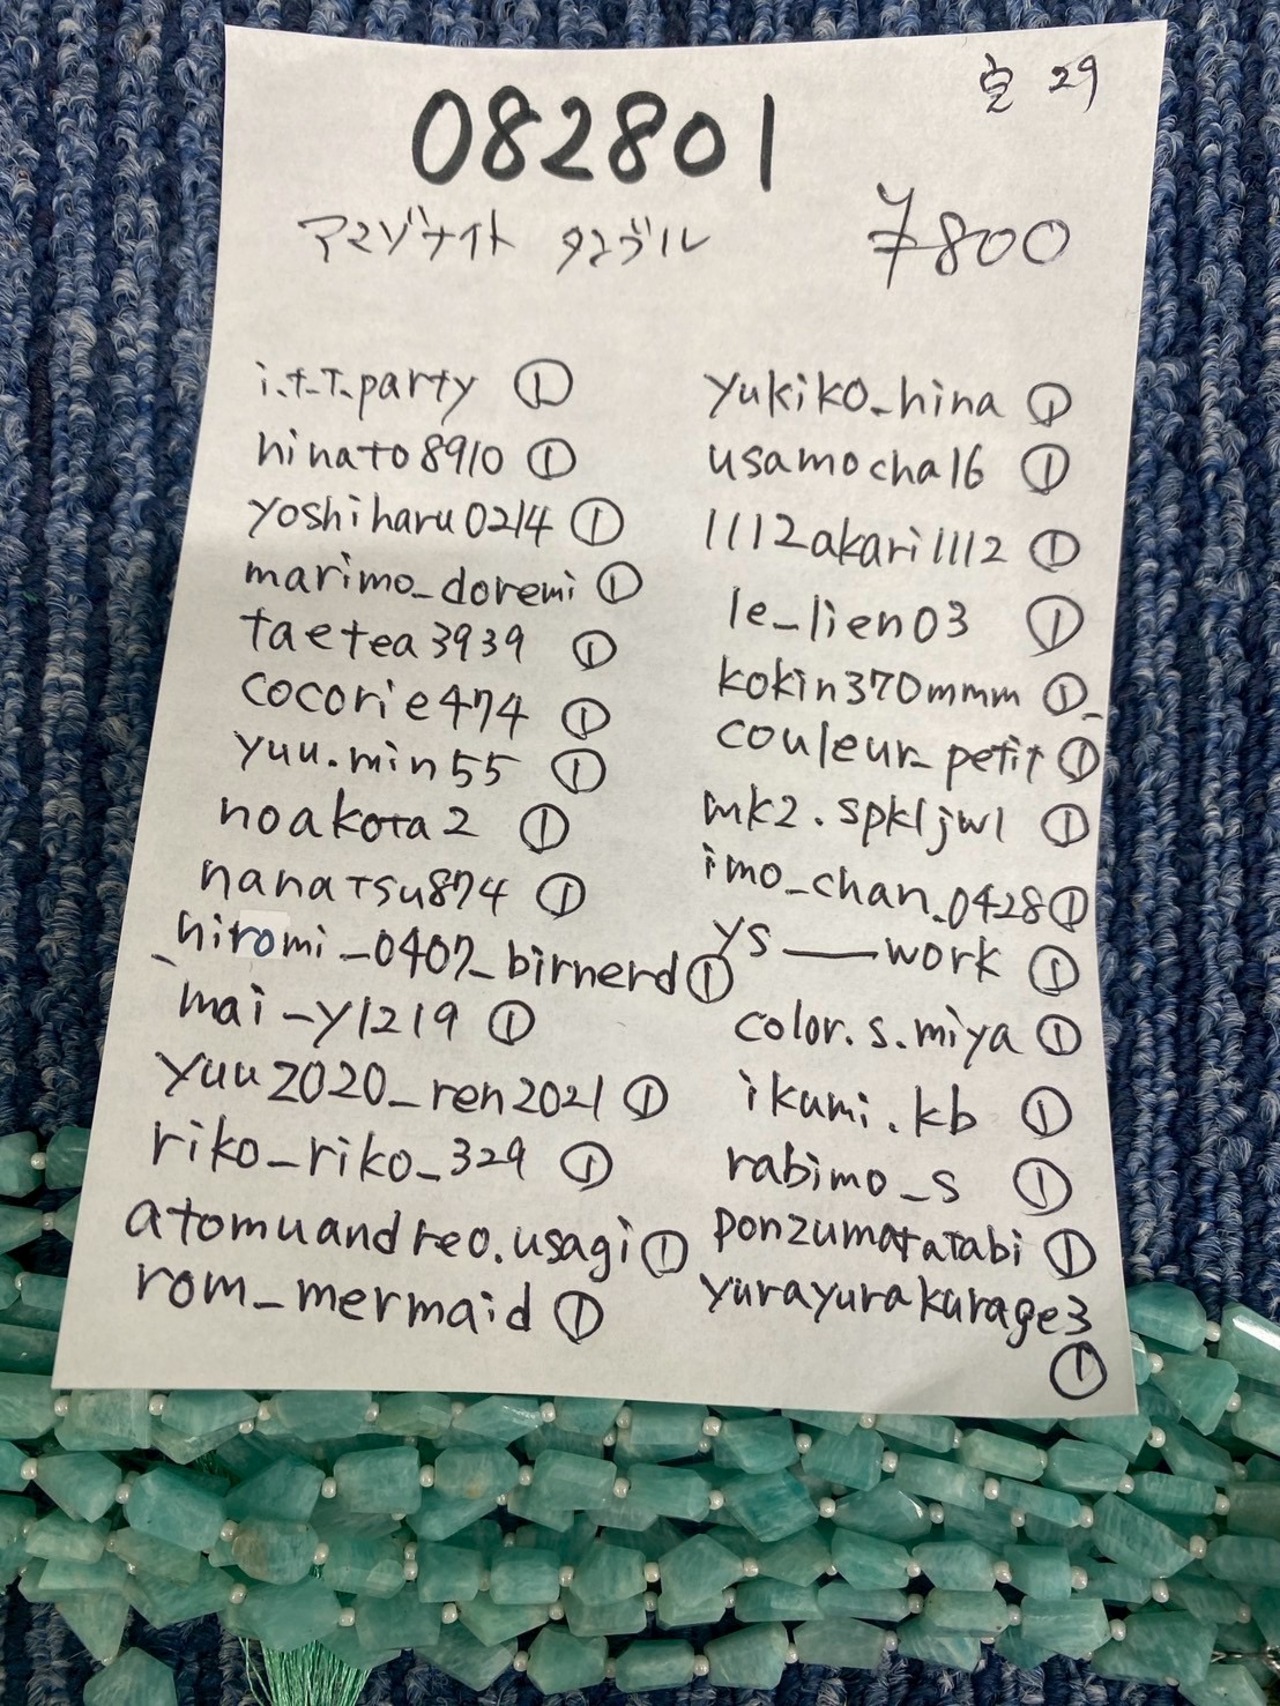 完 29
082801
アマゾナイト タンブル ¥800
i.t.T.party ①
hinato8910 ①
yoshiharu0214 ①
marimo_doremi ①
taetea3939 ①
cocorie474 ①
yuu.min55 ①
noakota2 ①
nanatsu874 ①
_hiromi_0407_birnerd ①
mai_y1219 ①
yuu2020_ren2021 ①
riko_riko_329 ①
atomuandreo.usagi ①
rom_mermaid ①
yukiko_hina ①
usamocha16 ①
1112akari1112 ①
le_lien03 ①
kokin370mmm ①
couleur_petit ①
mk2.spkljwl ①
imo_chan_0428 ①
ys___work ①
color.s.miya ①
ikumi.kb ①
rabimo_s ①
ponzumatatabi ①
yurayurakurage3
①